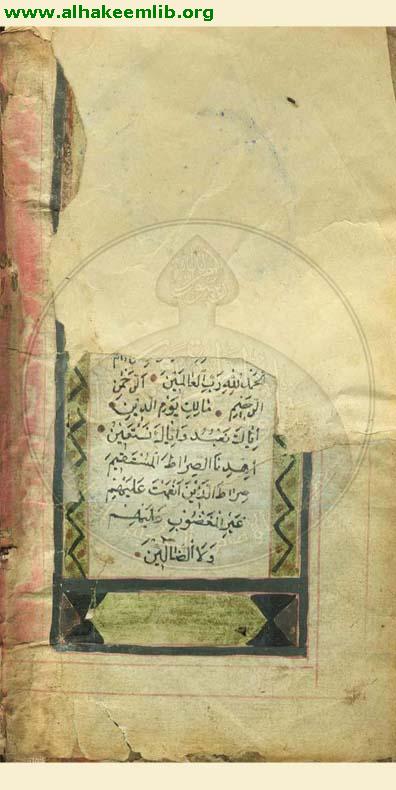 www.alhakeemlib.org
الحمد لله رب العالمين الرحمن
الرحيم مالك يوم الدين
اياك نعبد واياك نستعين
اهدنا الصراط المستقيم
صراط الذين انعمت عليهم
غير المغضوب عليهم
ولا الضالين